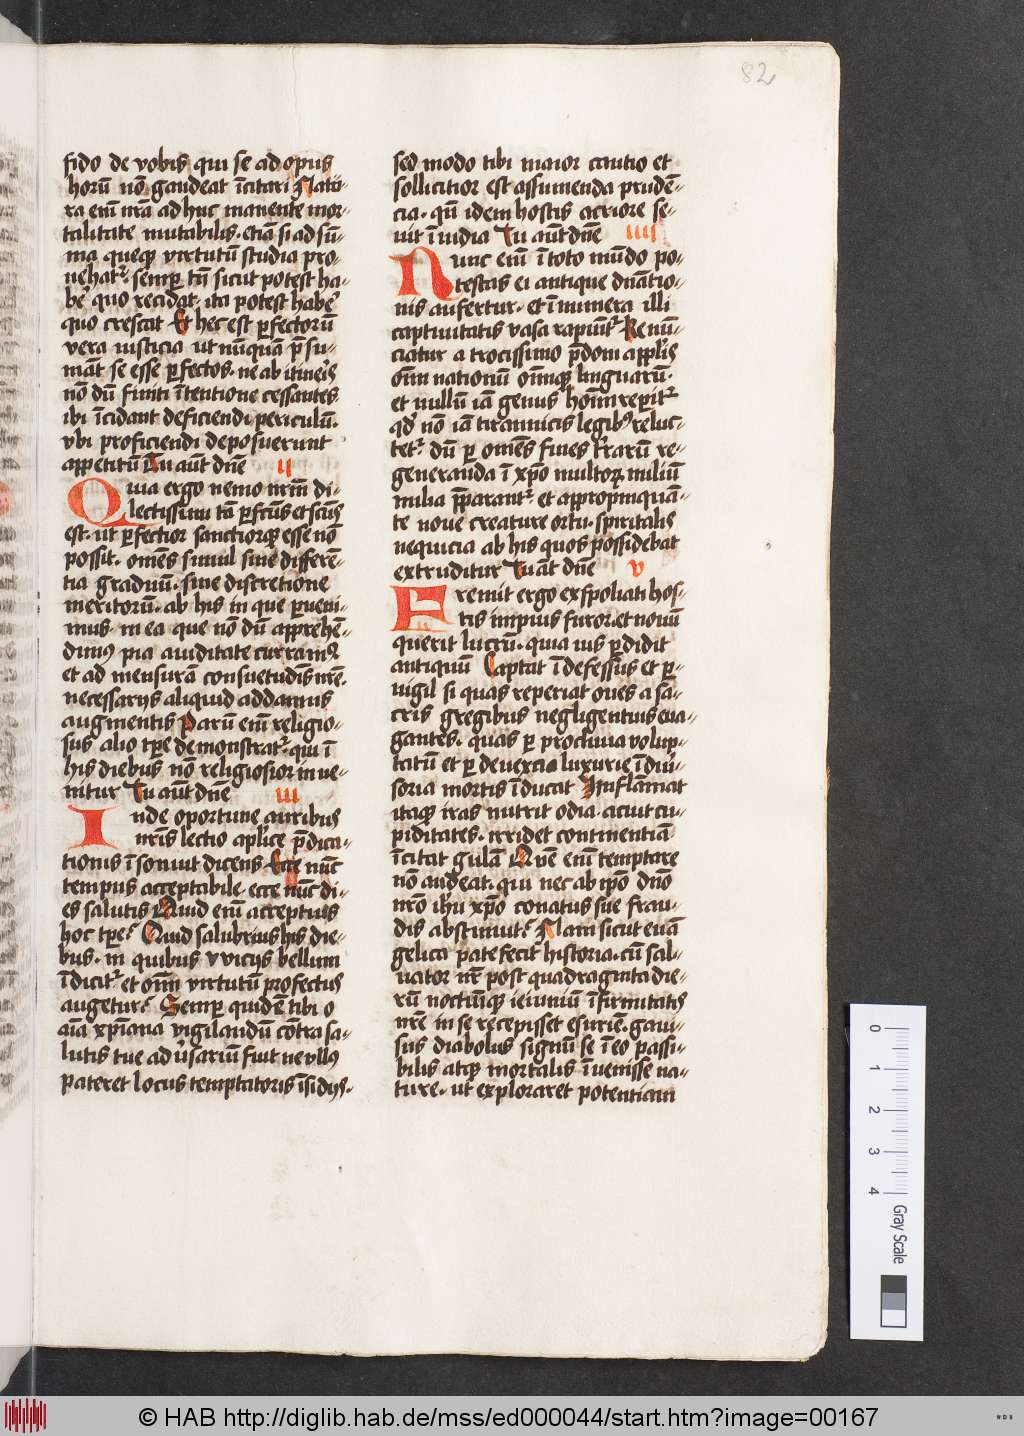 82
fido de vobis qui se ad opus
horū nō gaudeat īcitari Natu-
ra enī nr̄a ad huc manente mor-
talitate mutabilis. etiā si ad sū-
ma queqȝ virtutū studia pro-
uehat᷑. semꝑ tn̄ sicut potest ha-
be᷑ quo recidat. ita potest habe᷑
quo crescat Et hec est ꝑfectorū
vera iusticia ut nūquā p̄su-
māt se esse ꝑfectos. ne ab itine᷑is
nō dū finiti ītentione cessantes
ibi īcidant deficiendi periculū.
vbi proficiendi deposuerunt
appetitū Tu aūt dn̄e ii
Quia ergo nemo nr̄m di-
lectissimi tā ꝑfc̄us et sc̄us
est. ut ꝑfectior sanctiorqȝ esse nō
possit. omēs simul sine differē-
tia graduū. sine discretione
meritorū. ab his in que ꝑueni-
mus. in ea que nō dū apprehē-
dimꝰ pia auiditate curramꝰ
et ad mensurā consuetudīs nr̄e.
necessarijs aliquid addamus
augmentis Parū enī religio-
sus alio tp̄e demonstrat᷑. qui ī
his diebus nō religiosior inue-
nitur Tu aūt dn̄e iii
Inde oportune auribus
nr̄is lectio aplice p̄dica-
tionis īsonuit dicens Ecce nūc
tempus acceptabile ecce nūc di-
es salutis Quid enī acceptius
hoc tp̄e? Quid salubrius his die-
bus. in quibus vicijs bellum
īdicit᷑. et om̄ virtutū profectus
augetur? Semꝑ quidē tibi o
aīa xp̄iana vigilandū cōtra sa-
lutis tue aduᷣsariū fuit ne vllꝰ
pateret locus temptatoris īsidijs.
sed modo tibi maior cautio et
sollicitior est assumenda prudē-
cia. qn̄ idem hostis acriore se-
uit īuidia Tu aūt dn̄e iiii
Nunc enī ī toto mūdo po-
testas ei antique dn̄atio-
nis aufertur. et īnumera illi
captiuitatis vasa rapiūt᷑ Renū-
ciatur a trocissimo p̄doni a pp̄lis
om̄ nationū om̄qȝ linguarū.
et nullū iā genus hoīm reperit᷑
qd̓ nō iā tirannicis legibꝰ reluc-
tet᷑. dū ꝑ omēs fines t᷑rarū re-
generanda ī xp̄o multoꝝ miliū
milia p̄parant᷑ et appropinquā-
te noue creature ortu. spiritalis
nequicia ab his quos possidebat
extruditur Tu aūt dn̄e v
Fremit ergo exspoliati hos-
tis impius furor. et nouū
querit lucrū. quia ius ꝑdidit
antiquū Captat īdefessus et ꝑ-
uigil si quas reperiat oues a sa-
cris gregibus negligentius eua-
gantes. quas ꝑ procliuia volup-
tatū et ꝑ deuexcia luxurie ī diui-
soria mortis īducat Inflāmat
itaqȝ iras nutrit odia. acuit cu-
piditates. irridet continentiā
īcitat gulā Quē enī temptare
nō audeat. qui nec ab ip̄o dn̄o
nr̄o ih̄u xp̄o conatus sue frau-
dis abstinuit? Nam sicut euā
gelica patefecit historia. cū sal-
uator nr̄ post quadraginta die-
rū noctiūqȝ ieiuniū īfirmitatis
nr̄e in se recepisset esuriē. gaui-
sus diabolus signū se ī eo passi-
bilis atqȝ mortalis īuenisse na-
ture. ut exploraret potentiam
0 1 2 3 4
Gray Scale
© HAB http://diglib.hab.de/mss/ed000044/start.htm?image=00167